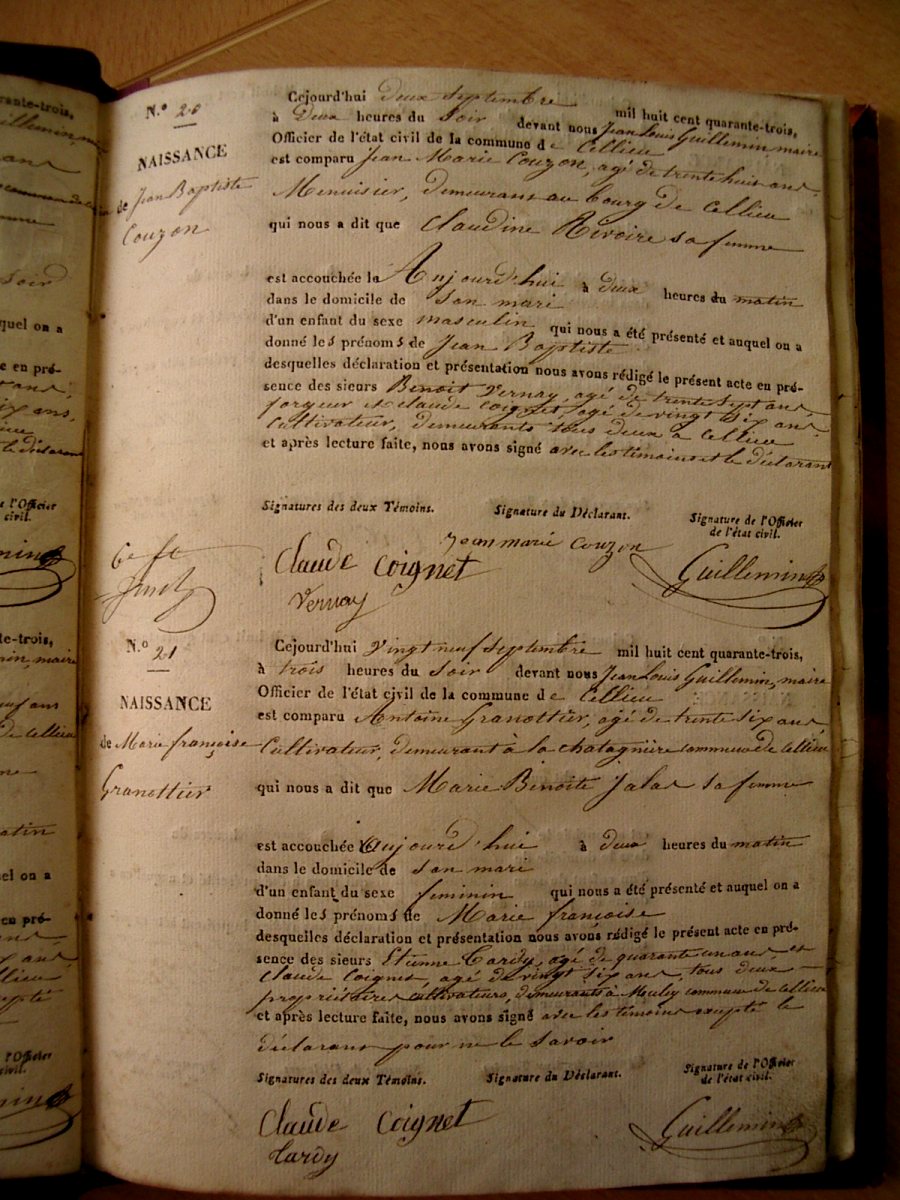 N.º 20
NAISSANCE
de Jean Baptiste
Couzon
Cejourd'hui deux septembre mil huit cent quarante-trois,
à Deux heures du Soir devant nous Jean Louis Guillemin, maire
Officier de l'état civil de la commune de Cellieu
est comparu Jean Marie Couzon, agé de trente huit ans
Menuisier, demeurant au bourg de Cellieu
qui nous a dit que Claudine Rivoire sa femme
est accouchée le Aujourd'hui à deux heures du matin
dans le domicile de son mari
d'un enfant du sexe masculin qui nous a été présenté et auquel on a
donné les prénoms de Jean Baptiste
desquelles déclaration et présentation nous avons rédigé le présent acte en pré-
sence des sieurs Benoit Vernay, agé de trente sept ans,
forgeur et Claude Coignet, agé de vingt six ans
cultivateur, demeurants tous deux à Cellieu
et après lecture faite, nous avons signé avec les témoins et le déclarant
Signatures des deux Témoins. Signature du Déclarant. Signature de l'Officier
de l'état civil.
Jean marie Couzon
Claude Coignet
Guillemin
Vernay
N.º 21
NAISSANCE
de Marie françoise
Granottier
Cejourd'hui Vingt neuf septembre mil huit cent quarante-trois,
à trois heures du Soir devant nous Jean Louis Guillemin, maire
Officier de l'état civil de la commune de Cellieu
est comparu Antoine Granottier, agé de trente six ans
Cultivateur, demeurant à la chatagnière commune de Cellieu
qui nous a dit que Marie Benoite Jalas sa femme
est accouchée Aujourd'hui à deux heures du matin
dans le domicile de son mari
d'un enfant du sexe feminin qui nous a été présenté et auquel on a
donné les prénoms de Marie françoise
desquelles déclaration et présentation nous avons rédigé le présent acte en pré-
sence des sieurs Etienne Cardy, agé de quarante un ans, et
Claude Coignet, agé de vingt six ans, tous deux
propriétaires cultivateurs, demeurants à commune de Cellieu
et après lecture faite, nous avons signé avec les témoins excepté le
déclarant pour ne le savoir
Signatures des deux Témoins. Signature du Déclarant. Signature de l'Officier
de l'état civil.
Claude Coignet
Guillemin
Cardy